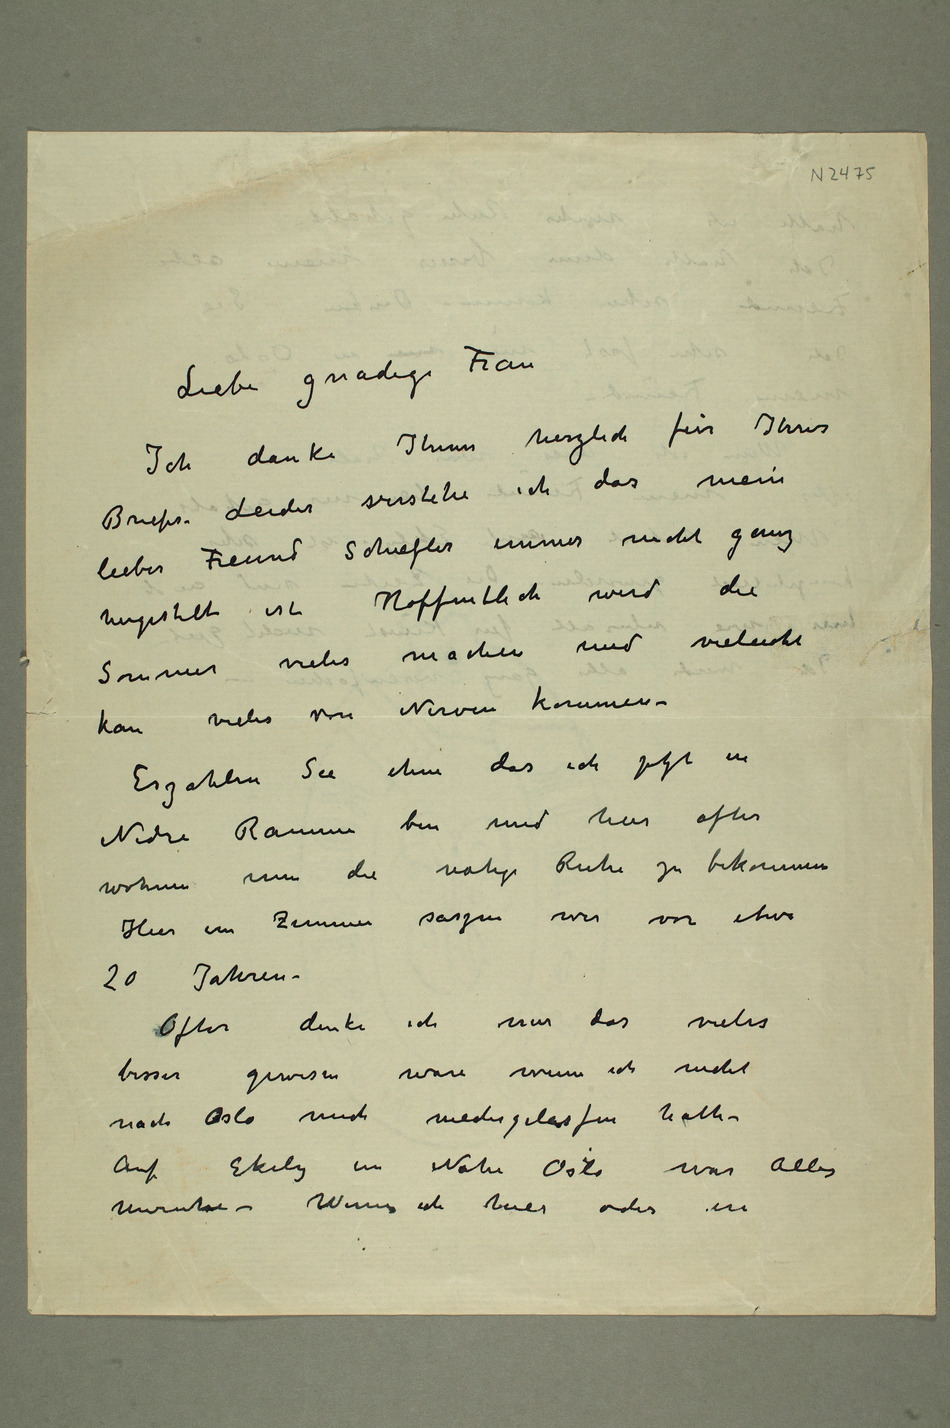 N 2475
Liebe gnadige Frau
Ich danke Ihnen herzlich für Ihres
Briefes. Leider verstehe ich das mein
lieber Freund Schiefler immer nicht ganz
hergestellt ist Hoffentlich wird die
Sommer vieles machen und vieleicht
kan vieles von Nerven kommen –
Erzahlen Sie ihm das ich jetzt in
Nedre Ramme bin und hier ofter
wohnen um die notige Ruhe zu bekommen
Hier im Zimmer saszen wir vor etwa
20 Jahren –
Ofter denke ich mir das vieles
besser gewesen ware wenn ich nicht
nach Oslo mich niedergelassen hatte –
Auf Ekely in Nahe Oslo war Alles
unruhe – Wenn ich hier oder in